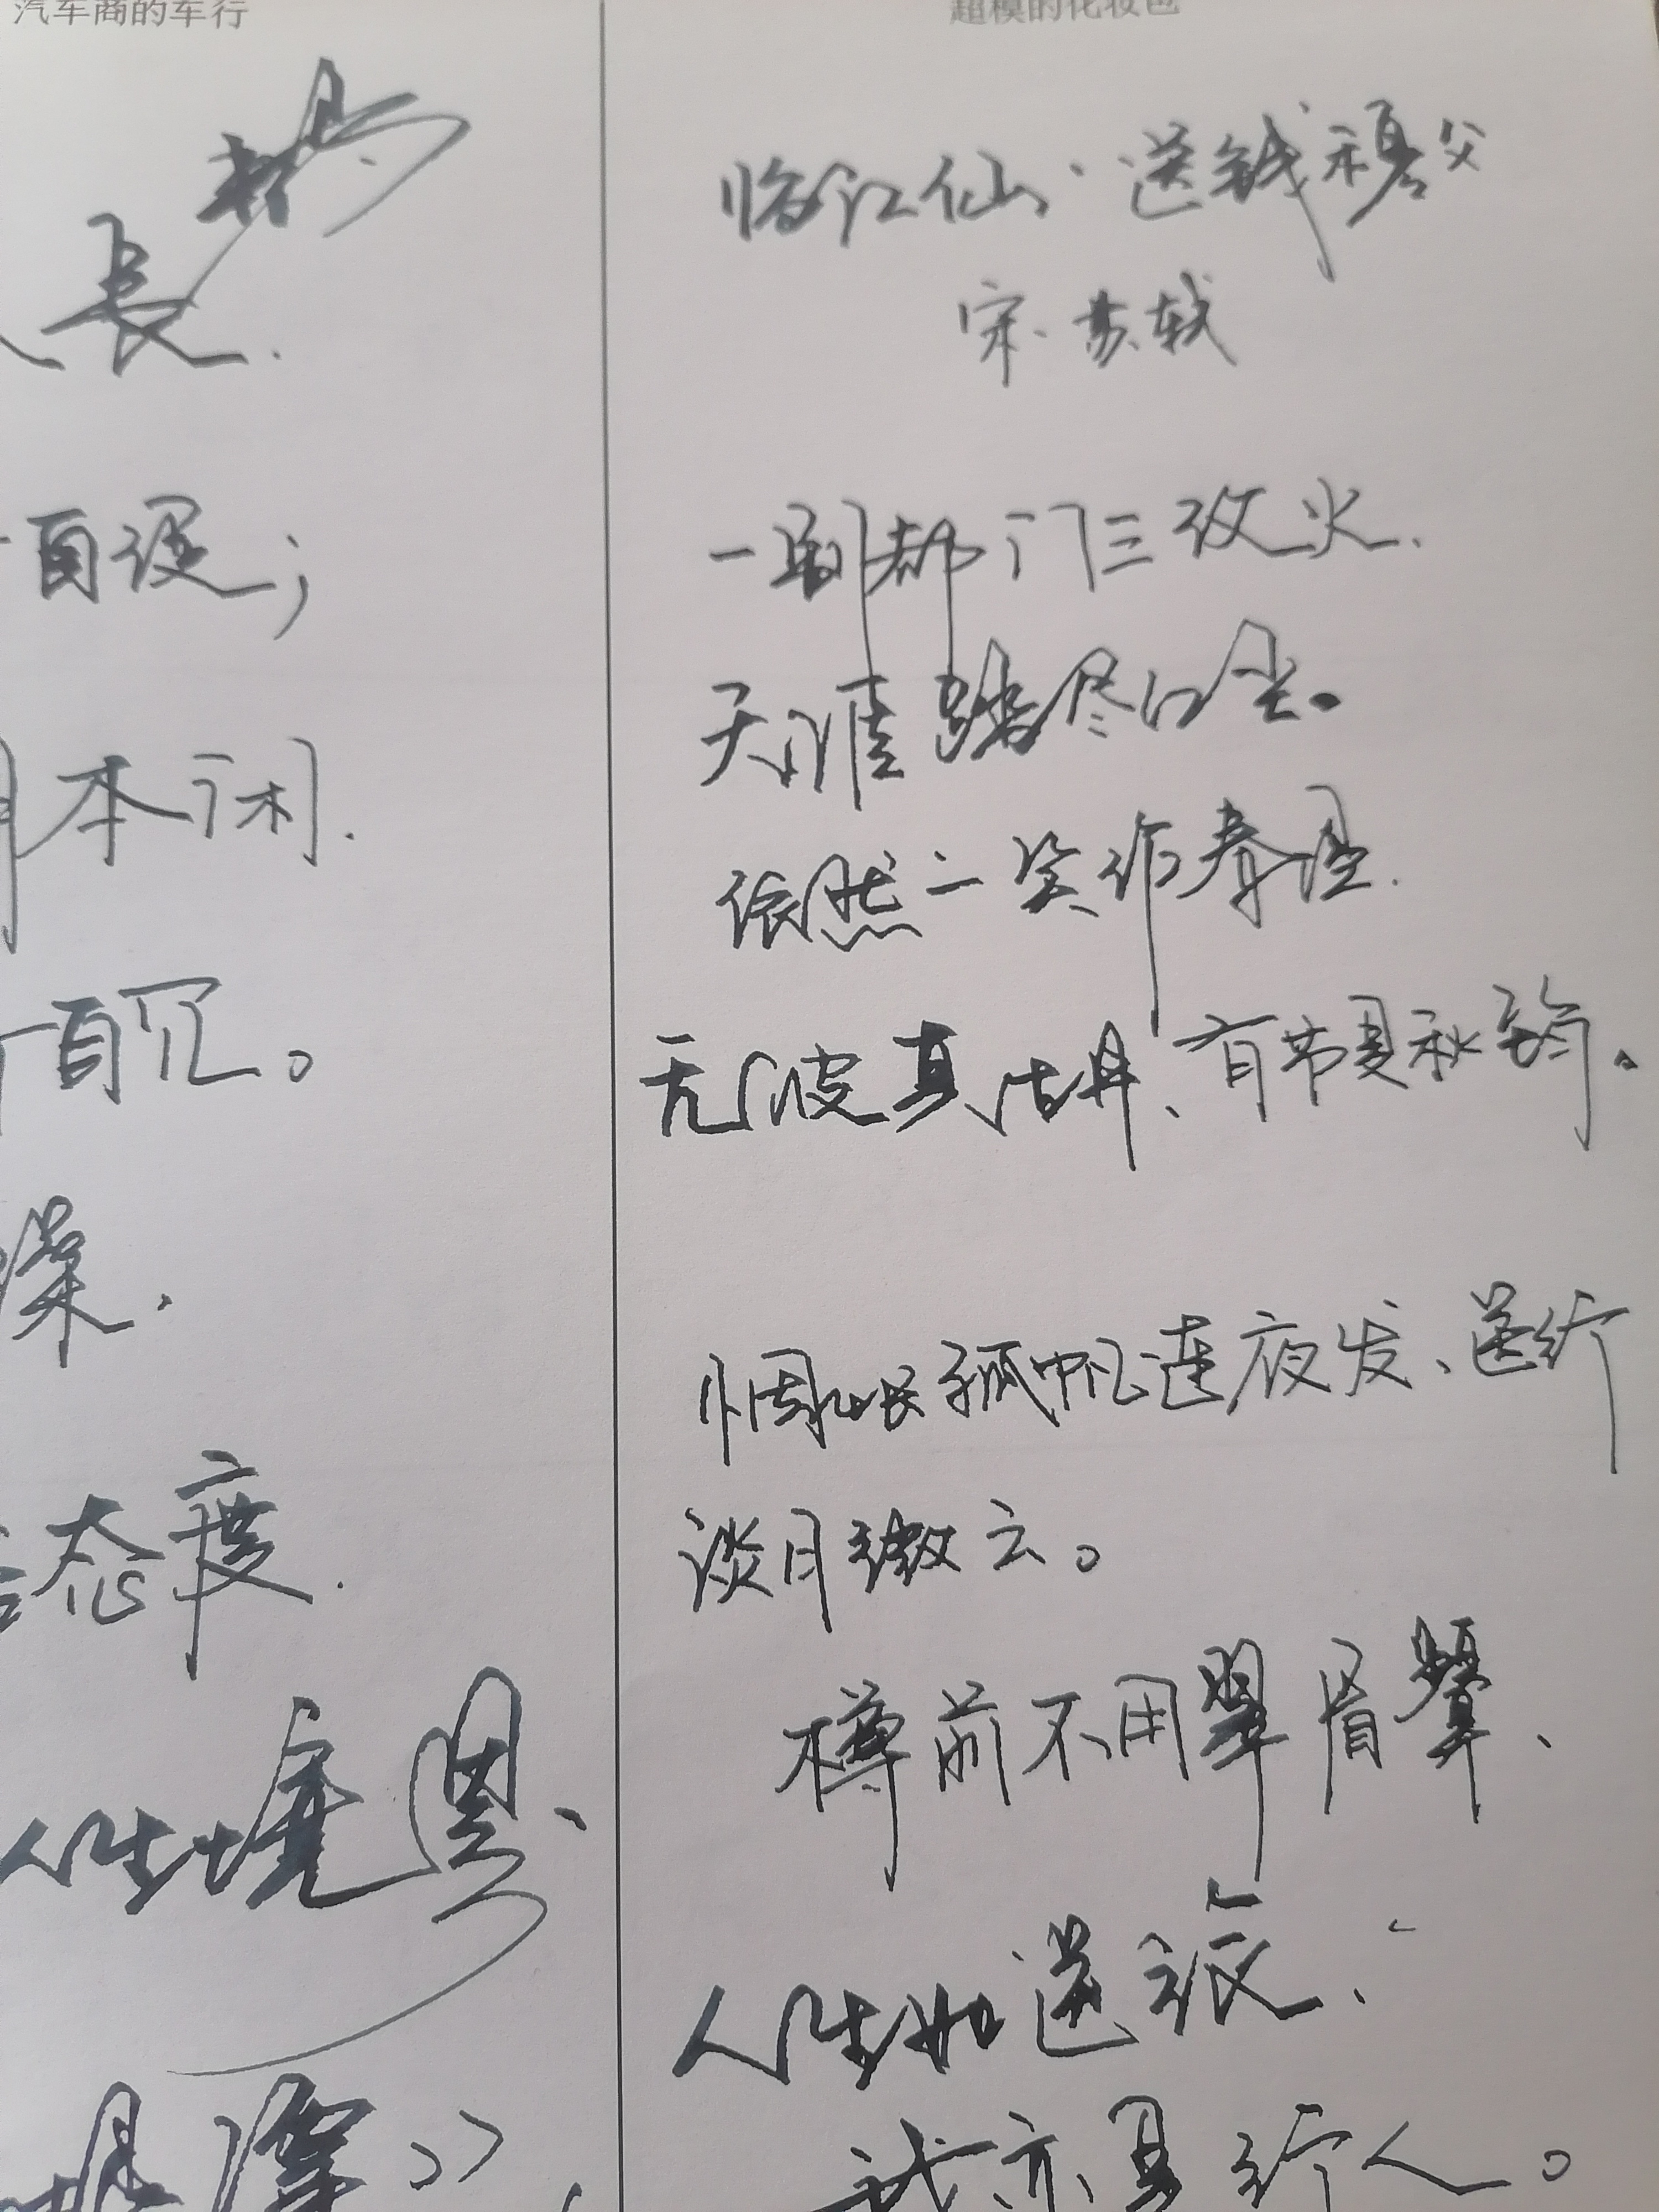 汽车商的车行
长
自渡；
本闲.
自沉。
澡.
态度.
人生境界、
超模的化妆包
临江仙·送钱穆父
宋·苏轼
一别都门三改火.
天涯踏尽红尘。
依然一笑作春温.
无波真古井、有节是秋筠。
惆怅孤帆连夜发、送行
淡月微云。
樽前不用翠眉颦、
人生如逆旅、
我亦是行人。